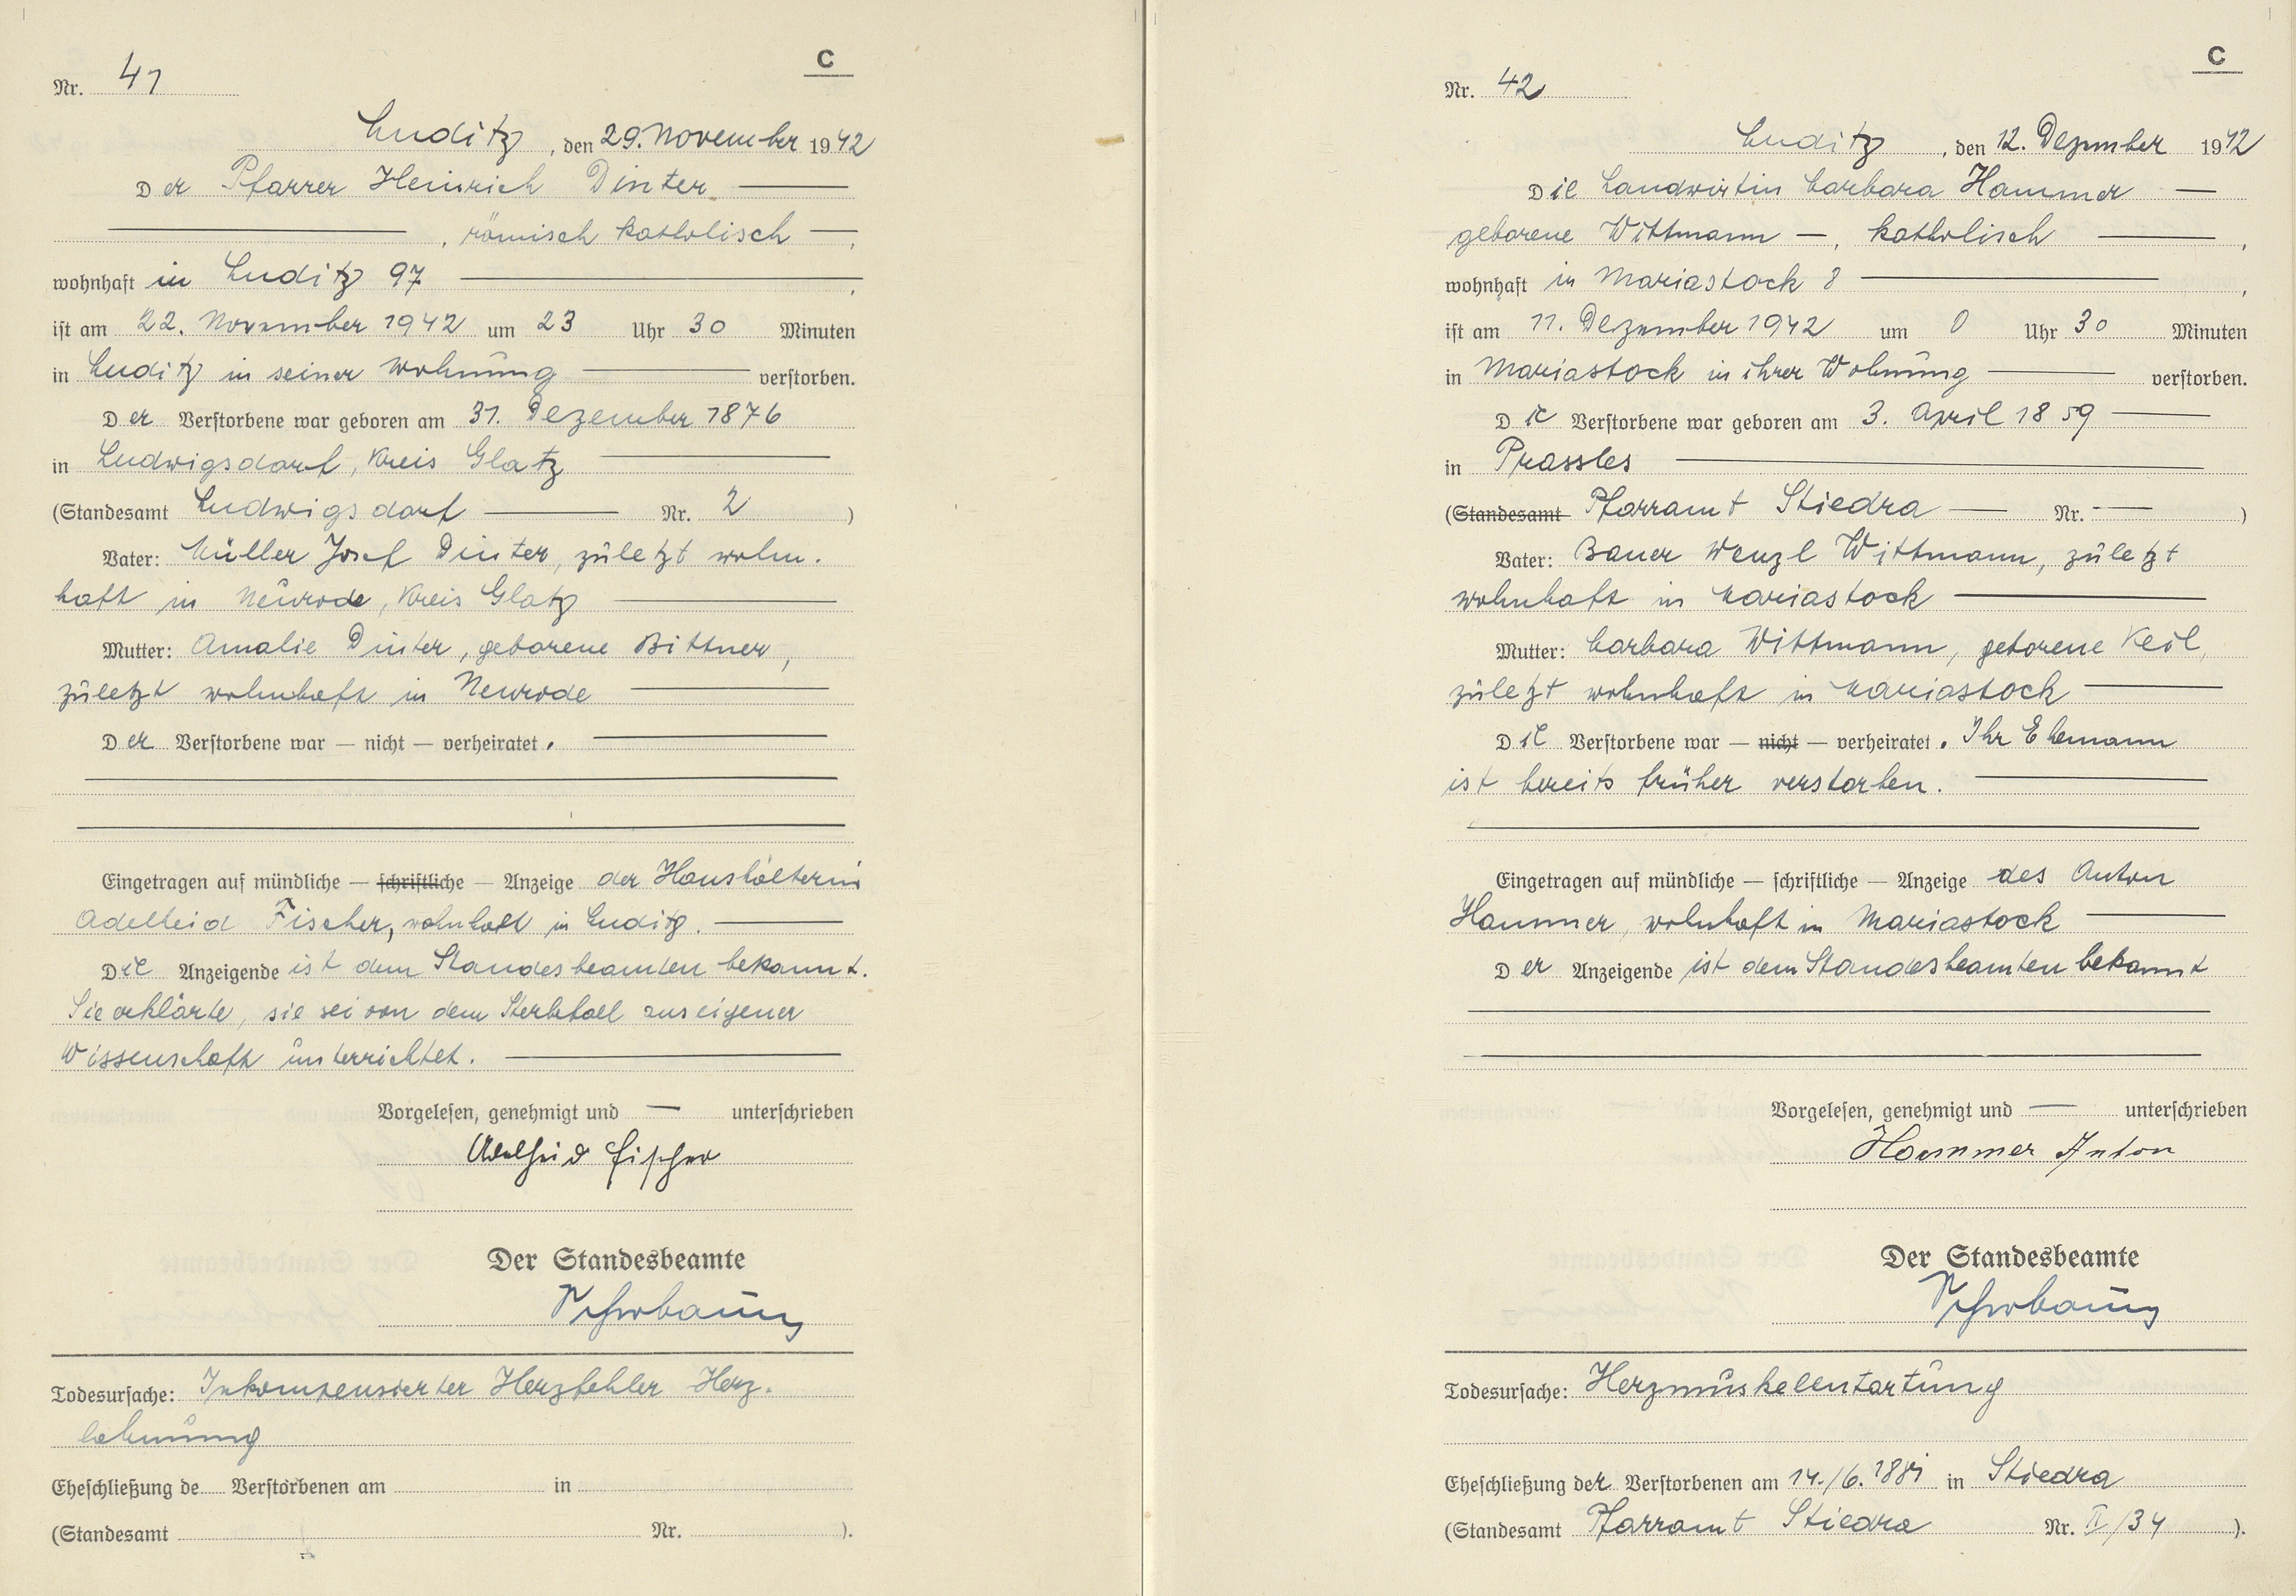 C
Nr. 41
Luditz, den 29. November 1942
Der Pfarrer Heinrich Dinter
, römisch katholisch ,
wohnhaft in Luditz 97 ,
ist am 22. November 1942 um 23 Uhr 30 Minuten
in Luditz in seiner Wohnung verstorben.
Der Verstorbene war geboren am 31. Dezember 1876
in Ludwigsdorf, Kreis Glatz
(Standesamt Ludwigsdorf Nr. 2 )
Vater: Müller Josef Dinter, zuletzt wohn-
haft in Neurode, Kreis Glatz
Mutter: Amalie Dinter, geborene Bittner,
zuletzt wohnhaft in Neurode
Der Verstorbene war — nicht — verheiratet.
Eingetragen auf mündliche — schriftliche — Anzeige der Haushälterin
Adelheid Fischer, wohnhaft in Luditz.
Die Anzeigende ist dem Standesbeamten bekannt.
Sie erklärte, sie sei von dem Sterbefall aus eigener
Wissenschaft unterrichtet.
Vorgelesen, genehmigt und — unterschrieben
Adelheid Fischer
Der Standesbeamte
Todesursache: Inkompensierter Herzfehler Herz-
lähmung
Eheschließung de Verstorbenen am in
(Standesamt Nr. ).
C
Nr. 42
Luditz, den 12. Dezember 1942
Die Landwirtin Barbara Hammer —
geborene Wittmann —, katholisch ,
wohnhaft in Mariastock 8 ,
ist am 11. Dezember 1942 um 0 Uhr 30 Minuten
in Mariastock in ihrer Wohnung verstorben.
Die Verstorbene war geboren am 3. April 1859
in Prassles
(Standesamt Pfarramt Stiedra — Nr. — )
Vater: Bauer Wenzl Wittmann, zuletzt
wohnhaft in Mariastock
Mutter: Barbara Wittmann, geborene Keil,
zuletzt wohnhaft in Mariastock
Die Verstorbene war — nicht — verheiratet. Ihr Ehemann
ist bereits früher verstorben.
Eingetragen auf mündliche — schriftliche — Anzeige des Anton
Hammer, wohnhaft in Mariastock
Der Anzeigende ist dem Standesbeamten bekannt
Vorgelesen, genehmigt und — unterschrieben
Hammer Anton
Der Standesbeamte
Todesursache: Herzmuskelentartung
Eheschließung der Verstorbenen am 14./6. in Stiedra
(Standesamt Pfarramt Stiedra Nr. II/34 ).